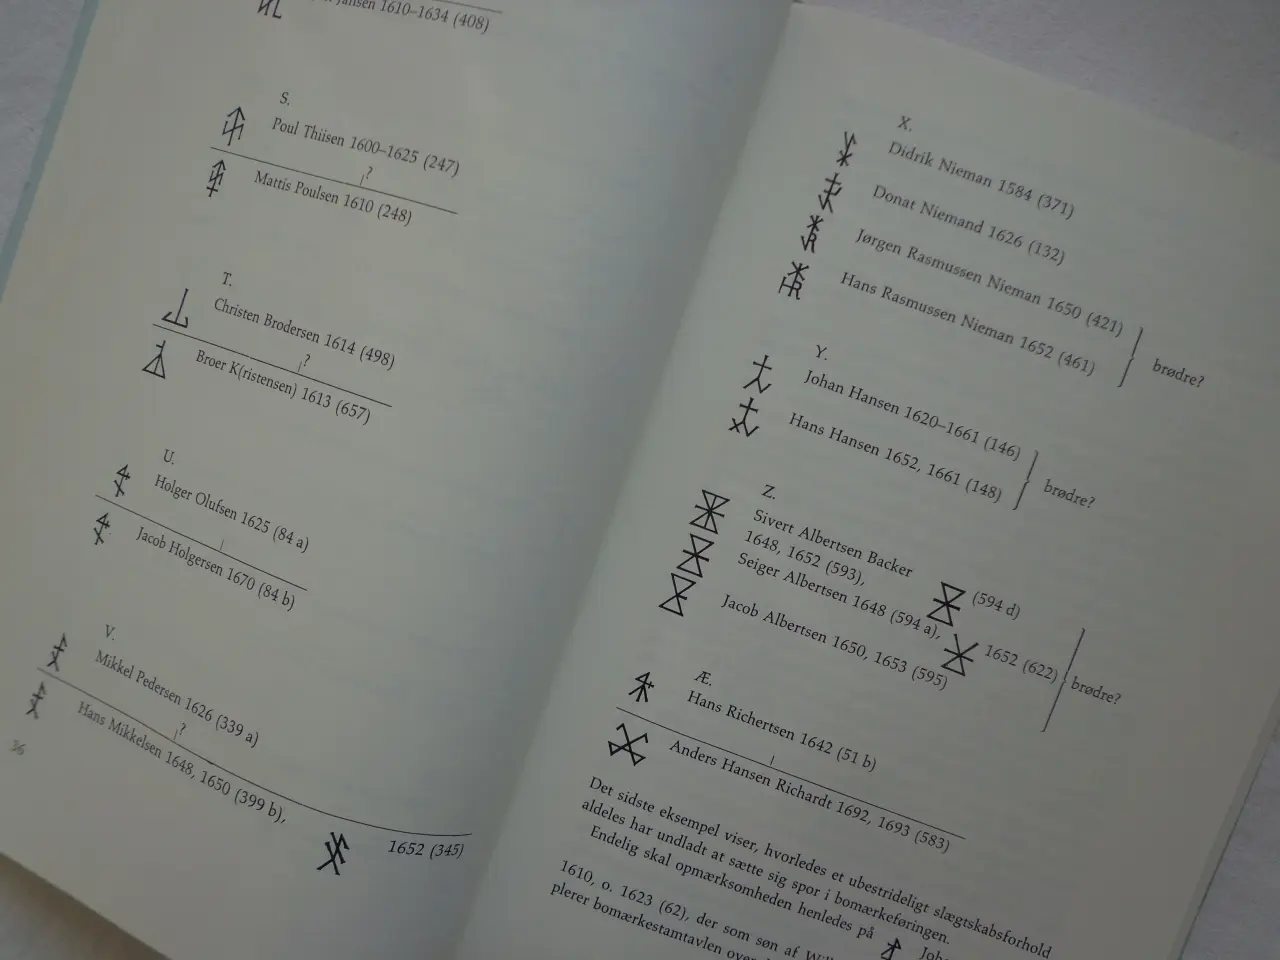 Jansen 1610–1634 (408)
S.
Poul Thiisen 1600–1625 (247)
?
Mattis Poulsen 1610 (248)
T.
Christen Brodersen 1614 (498)
?
Broer K(ristensen) 1613 (657)
U.
Holger Olufsen 1625 (84 a)
Jacob Holgersen 1670 (84 b)
V.
Mikkel Pedersen 1626 (339 a)
?
Hans Mikkelsen 1648, 1650 (399 b),
1652 (345)
36
X.
Didrik Nieman 1584 (371)
Donat Niemand 1626 (132)
Jørgen Rasmussen Nieman 1650 (421)
Hans Rasmussen Nieman 1652 (461)
brødre?
Y.
Johan Hansen 1620–1661 (146)
Hans Hansen 1652, 1661 (148)
brødre?
Z.
Sivert Albertsen Backer
1648, 1652 (593),
(594 d)
Seiger Albertsen 1648 (594 a),
1652 (622)
Jacob Albertsen 1650, 1653 (595)
brødre?
Æ.
Hans Richertsen 1642 (51 b)
Anders Hansen Richardt 1692, 1693 (583)
Det sidste eksempel viser, hvorledes et ubestrideligt slægtskabsforhold
aldeles har undladt at sætte sig spor i bomærkeføringen.
Endelig skal opmærksomheden henledes på
1610, o. 1623 (62), der som søn af
plerer bomærkestamtavlen